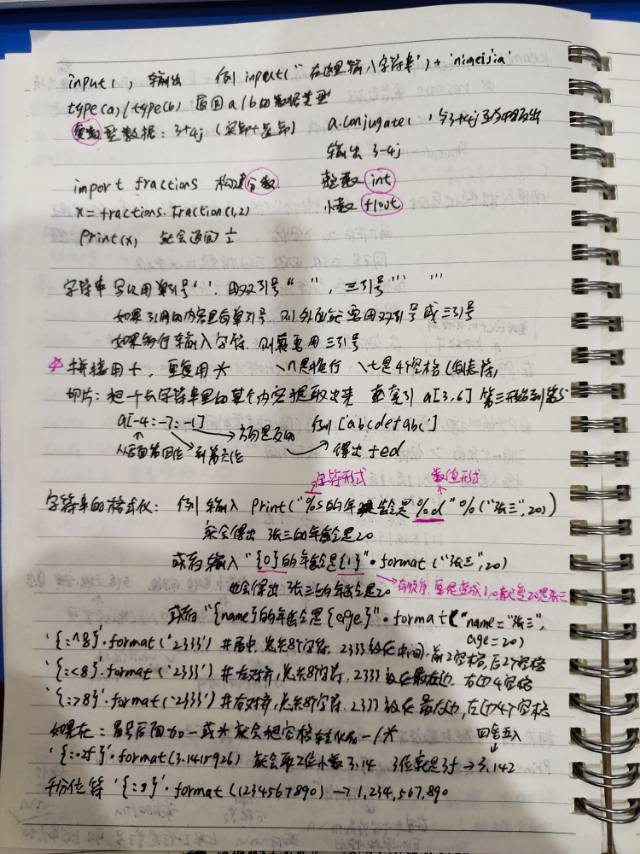 input(), 输出 例 input("在这里输入字符串")+'nimeijia'
type(a)/type(b) 返回a/b的数据类型
复数型数据: 3+4j (实部+虚部) a.conjugate(), 与3+4j
输出 3-4j
import fractions 构建分数 整数 int
x=fractions.Fraction(1,2) 小数 float
print(x) 就会返回 1/2
字符串可以用单引号' ', 用双引号" ", 三引号''' '''
如果引用的内容里有单引号, 则外面就要用双引号或三引号
如果多行输入字符, 则要用三引号
拼接用+, 重复用* \n是换行 \t是4个空格(制表符)
切片: 把一个长字符串里的某个内容提取出来 a[3,6] 第三开始到第5
a[-4:-7:-1] 方向是反的 例[abcdefabc']
从后面第四位 到第六位 得出 fed
字符形式 数值形式
字符串的格式化: 例 输入 print("%s的年龄是%d"%("张三",20))
就会得出 张三的年龄是20
或者输入 "{0}的年龄是{1}".format("张三",20)
也会得出 张三的年龄是20
或者 "{name}的年龄是{age}".format(name="张三",
age=20)
'{:^8}'.format('2333') #居中, 总共8个字符, 2333放在中间, 前2空格, 后2空格
'{:<8}'.format('2333') #左对齐, 总共8个字符, 2333放在最左边, 右边4空格
'{:>8}'.format('2333') #右对齐, 总共8个字符, 2333放在最右边, 左边4个空格
如果在:冒号后面加-或*就会把空格转化为-/* 四舍五入
'{:.2f}'.format(3.1415926) 就会取2位小数 3.14 3位就是3f→3.142
千分位符 '{:,}'.format(1234567890)→1,234,567,890